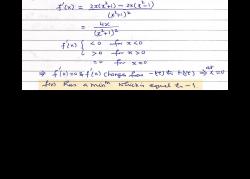 f'(x) = 2x(x²+1) - 2x(x²-1)
(x²+1)²
= 4x
(x²+1)²
f'(x) { <0 for x<0
>0 for x>0
=0 for x=0
⇒ f'(x)=0 & f'(x) changes from -ve to +ve at x=0
f(x) has a minm which is equal to -1